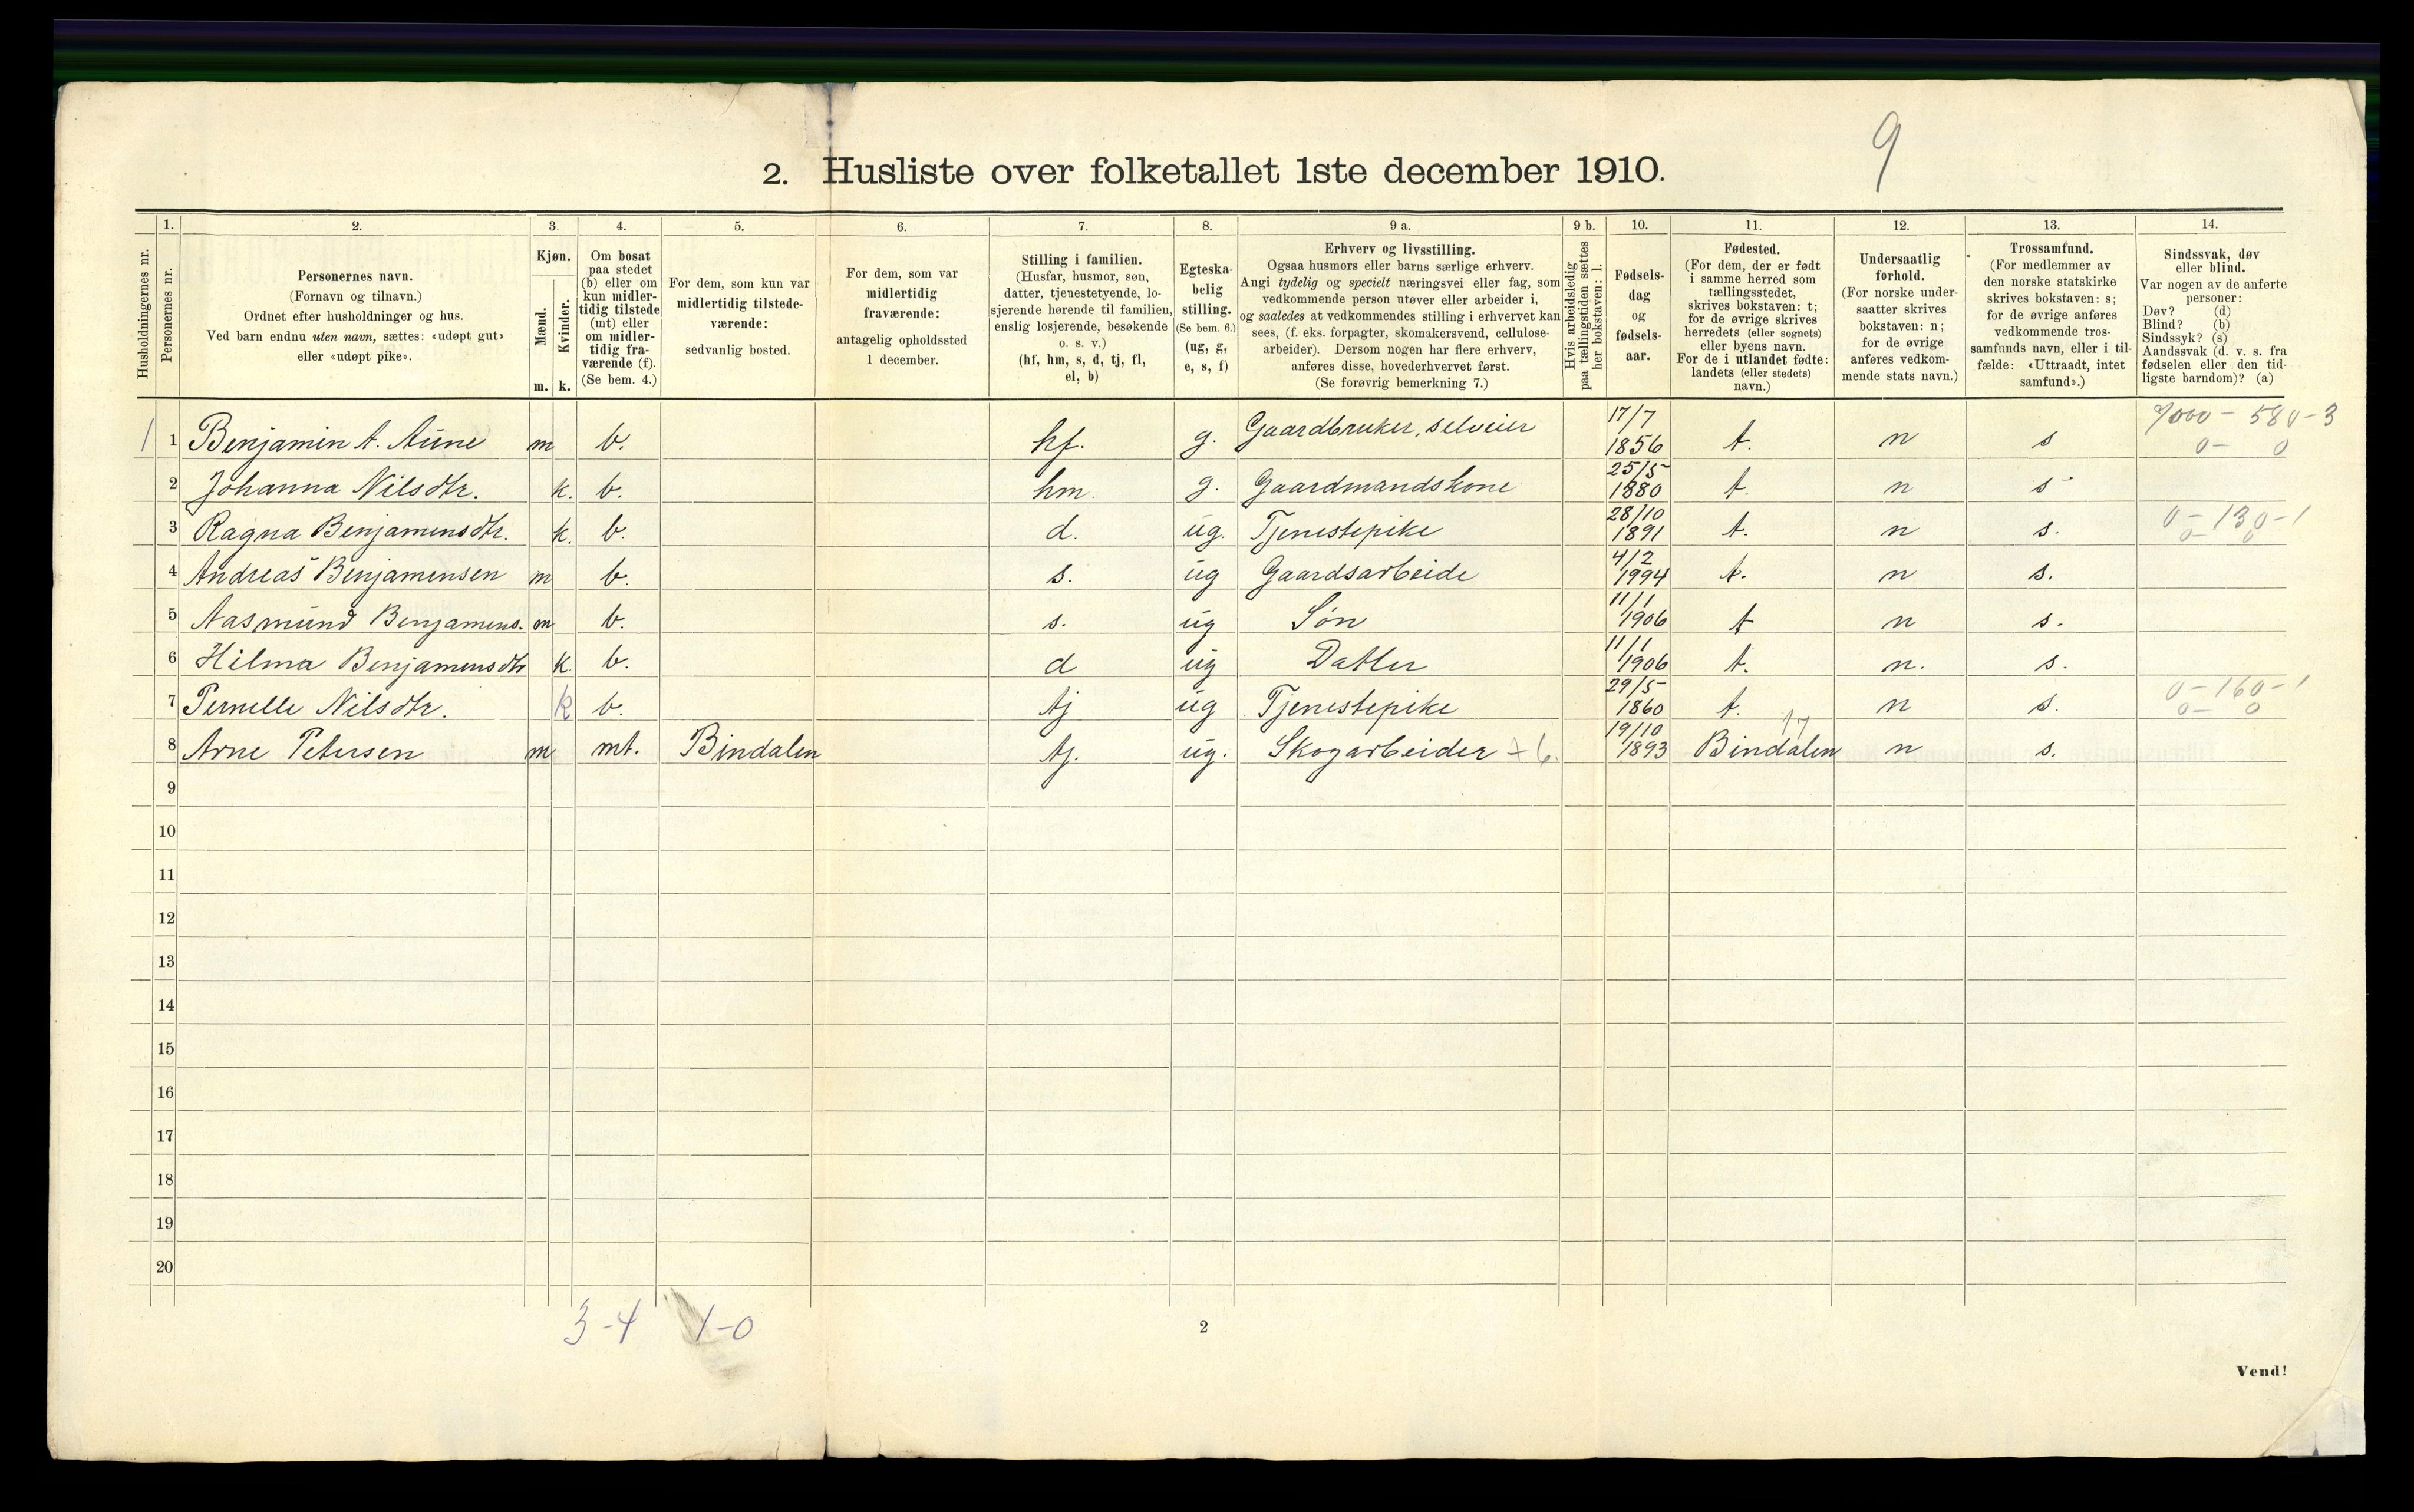 9
2. Husliste over folketallet 1ste december 1910.
Husholdningernes nr.
1.
Personernes nr.
2.
Personernes navn.
(Fornavn og tilnavn.)
Ordnet efter husholdninger og hus.
Ved barn endnu uten navn, sættes: «udøpt gut»
eller «udøpt pike».
3.
Kjøn.
Mænd.
Kvinder.
m. k.
4.
Om bosat
paa stedet
(b) eller om
kun midler-
tidig tilstede
(mt) eller
om midler-
tidig fra-
værende (f).
(Se bem. 4.)
5.
For dem, som kun var
midlertidig tilstede-
værende:
sedvanlig bosted.
6.
For dem, som var
midlertidig
fraværende:
antagelig opholdssted
1 december.
7.
Stilling i familien.
(Husfar, husmor, søn,
datter, tjenestetyende, lo-
sjerende hørende til familien,
enslig losjerende, besøkende
o. s. v.)
(hf, hm, s, d, tj, fl,
el, b)
8.
Egteska-
belig
stilling.
(Se bem. 6.)
(ug, g,
e, s, f)
9 a.
Erhverv og livsstilling.
Ogsaa husmors eller barns særlige erhverv.
Angi tydelig og specielt næringsvei eller fag, som
vedkommende person utøver eller arbeider i,
og saaledes at vedkommendes stilling i erhvervet kan
sees, (f. eks. forpagter, skomakersvend, cellulose-
arbeider). Dersom nogen har flere erhverv,
anføres disse, hovederhvervet først.
(Se forøvrig bemerkning 7.)
9 b.
Hvis arbeidsledig
paa tællingstiden sættes
her bokstaven: l.
10.
Fødsels-
dag
og
fødsels-
aar.
11.
Fødested.
(For dem, der er født
i samme herred som
tællingsstedet,
skrives bokstaven: t;
for de øvrige skrives
herredets (eller sognets)
eller byens navn.
For de i utlandet fødte:
landets (eller stedets)
navn.)
12.
Undersaatlig
forhold.
(For norske under-
saatter skrives
bokstaven: n;
for de øvrige
anføres vedkom-
mende stats navn.)
13.
Trossamfund.
(For medlemmer av
den norske statskirke
skrives bokstaven: s;
for de øvrige anføres
vedkommende tros-
samfunds navn, eller i til-
fælde: «Uttraadt, intet
samfund».)
14.
Sindssvak, døv
eller blind.
Var nogen av de anførte
personer:
Døv? (d)
Blind? (b)
Sindssyk? (s)
Aandssvak (d. v. s. fra
fødselen eller den tid-
ligste barndom)? (a)
1 1 Benjamin A. Aune m b. hf. g. Gaardbruker, selveier 17/7 1856 t. n s 7000 - 580-3
0- 0
2 Johanna Nilsdtr. k. b. hm. g. Gaardmandskone 25/5 1880 t. n s
3 Ragna Benjamensdtr. k. b. d. ug. Tjenestepike 28/10 1891 t. n s. 0-130-1
0- 0
4 Andreas Benjamensen m b. s. ug Gaardsarbeide 4/2 1994 t. n s.
5 Aasmund Benjamens. m b. s. ug Søn 11/1 1906 t n s.
6 Hilma Benjamensdtr k. b. d ug Datter 11/1 1906 t. n. s.
7 Pernelle Nilsdtr. k b. tj ug Tjenestepike 29/5 1860 t. n s. 0-160-1
0- 0
8 Arne Petersen m mt. Bindalen tj. ug. Skogarbeider 19/10 1893 Bindalen 17 n s.
9
10
11
12
13
14
15
16
17
18
19
20
3-4 1-0
2
Vend!